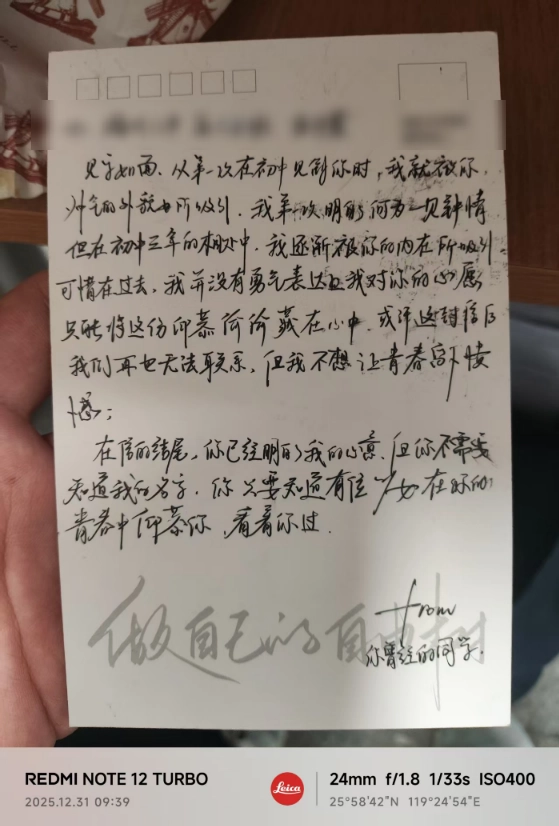 见字如面，从第一次在初中见到你时，我就被你
帅气的外貌由所吸引．我第一次明白何为一见钟情
但在初中三年的相处中．我逐渐被你的内在所吸引
可惜在过去，我并没有勇气表达出我对你的心愿
只能将这份仰慕偷偷藏在心中．或许这封信后
我们再也无法联系，但我不想让青春留下
憾；
在信的结尾，你已经明白了我的心意．但你不需要
知道我的名字．你只要知道有位少女在你的
青春中仰慕你，看着你过．
做自己的自由
from
你曾经的同学．
REDMI NOTE 12 TURBO
2025.12.31 09:39
Leica
24mm f/1.8 1/33s ISO400
25°58'42"N 119°24'54"E